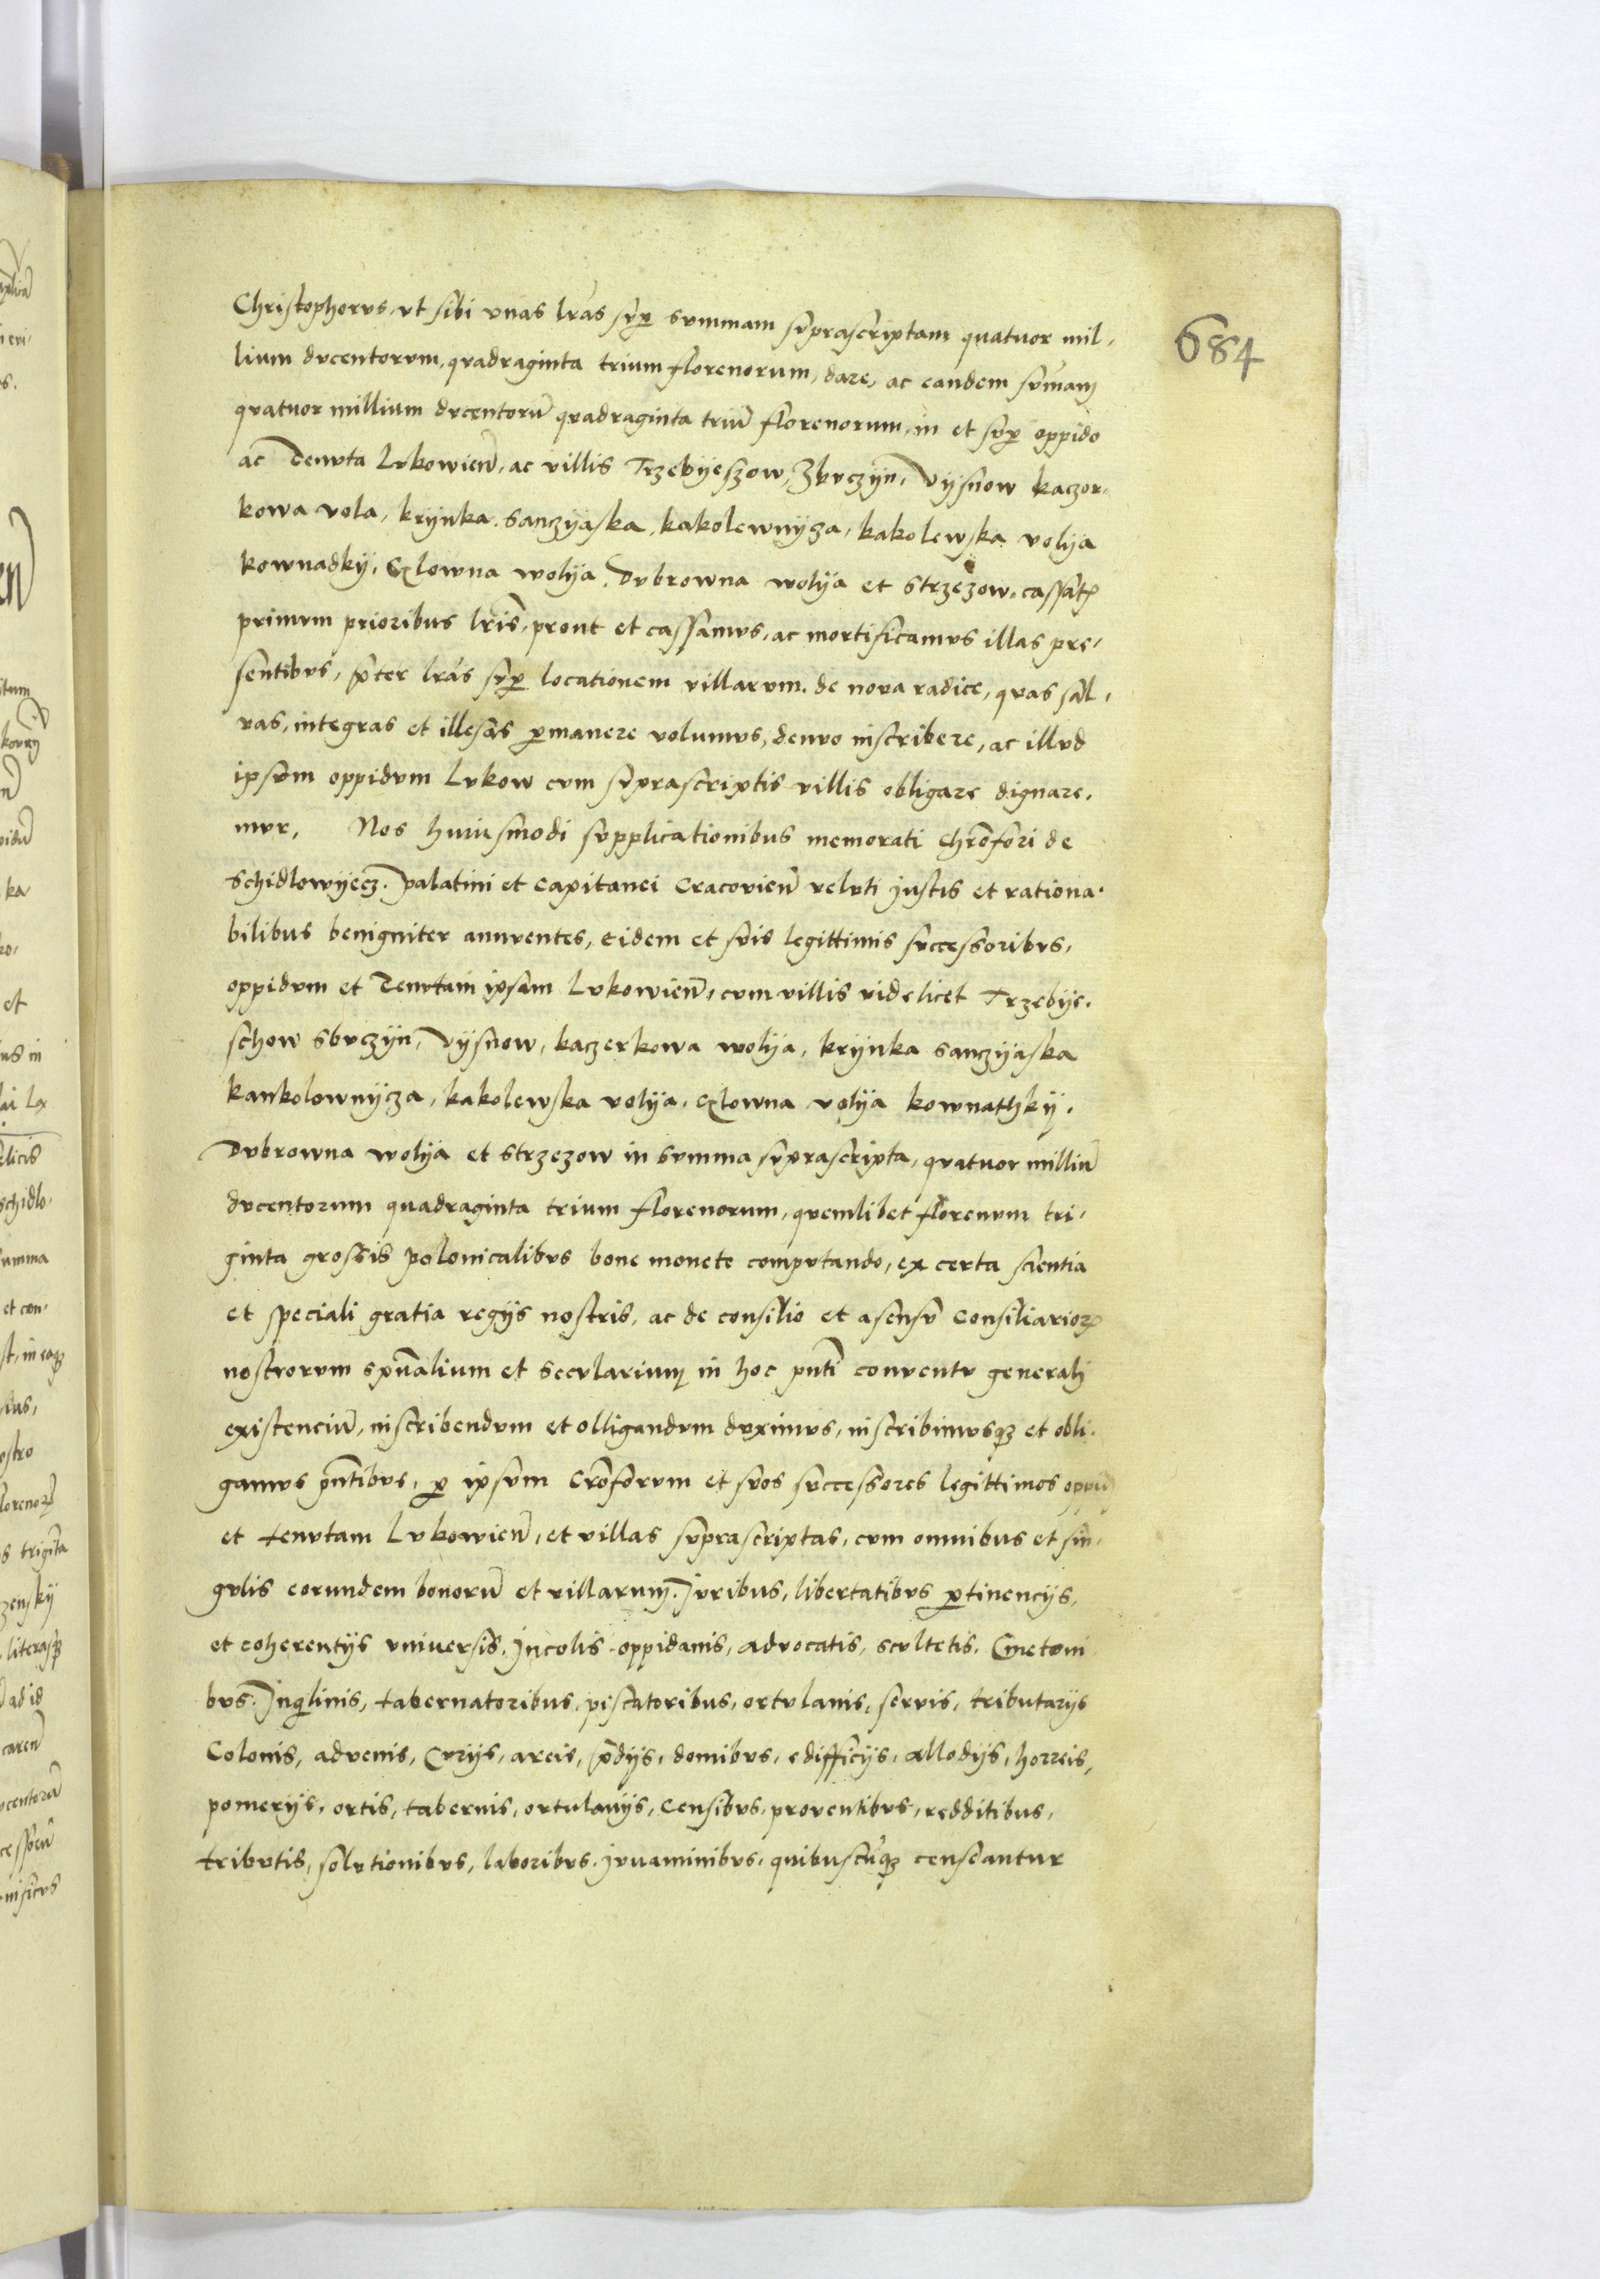 684
Christophorus, ut sibi unas lr̃as sup̱ summam suprascriptam quatuor mil-
lium ducentorum, quadraginta trium florenorum, dare, ac eandem sum̃am
quatuor millium ducentorũ quadraginta triũ florenorum, in et sup̱ oppido
ac Tenuta Lukowieñ, ac villis Trzebyeszow, Zbuczyn, Vysnow kaczor-
kowa vola, krynka, sanczyaska, kakolewnycza, kakolewska volya
kownadky, Czlowna wolya, Dubrowna wolya et strzezow, cassatꝭ
primum prioribus lr̃is, prout et cassamus, ac mortificamus illas pre-
sentibus, p̃ter lr̃as sup̱ locationem villarum de nova radice, quas sal-
vas, integras et illesas p̱manere volumus, denuo inscribere, ac illud
ipsum oppidum Lukow cum suprascriptis villis obligare dignare-
mur. Nos huiusmodi supplicationibus memorati Chr̃ofori de
Schidlowyecz, palatini et Capitanei Cracovieñ veluti Justis et rationa-
bilibus benigniter annuentes, eidem et suis legittimis successoribus,
oppidum et Tenutam ipsam Lukowieñ, cum villis videlicet Trzebye-
schow sbuczyn, Vysnow, kaczerkowa wolya, krynka sanczyaska
kankolownycza, kakolewska volya, Czlowna volya kownathky,
Dubrowna wolya et strzezow in summa suprascripta, quatuor milliũ
ducentorum quadraginta trium florenorum, quemlibet florenum tri-
ginta grossis polonicalibus bone monete computando, ex certa scientia
et speciali gratia regijs nostris, ac de consilio et asensu Consiliarioꝝ
nostrorum spũalium et secularium in hoc pñti conventu generali
existenciũ, inscribendum et olligandum duximus, inscribimusqꝫ et obli-
gamus pñtibus, p̱ ipsum Crõforum et suos successores legittimos oppid
et tenutam Lukowieñ, et villas suprascriptas, cum omnibus et sin-
gulis eorundem bonorũ et villarum, Juribus, libertatibus p̱tinencijs,
et coherentijs universis, Incolis oppidanis, advocatis, scultetis, Cmetoni
bus, Inq̱linis, tabernatoribus, piscatoribus, ortulanis, servis, tributarijs
Colonis, advenis, Curijs, areis, p̃dijs, domibus, edifficijs, allodijs, horreis,
pomerijs, ortis, tabernis, ortulanijs, Censibus, proventibus, redditibus,
tributis, solutionibus, laboribus, Juvaminibus, quibuscũqꝫ censeantur